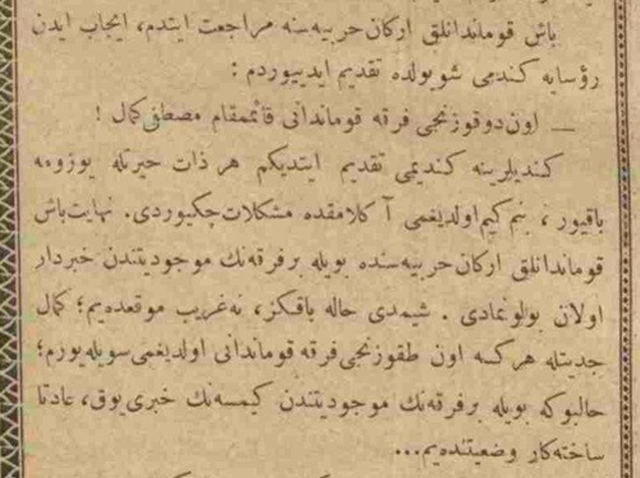 باش قوماندانلق اركان حربیه‌سنه مراجعت ایتدم، ایجاب ایدن
رؤسایه كندمی شو یولده تقدیم ایدییوردم :
— اون دوقوزنجی فرقه قوماندانی قائممقام مصطفی كمال !
كندیلرینه كندیمی تقدیم ایتدیكم هر ذات حیرتله یوزومه
باقیور ، بنم كیم اولدیغمی آكلامقده مشكلات چكیوردی. نهایت باش
قوماندانلق اركان حربیه‌سنده بویله بر فرقه‌نك موجودیتندن خبردار
اولان بولونمادی . شیمدی حاله باقكز، نه غریب موقعده‌یم؛ كمال
جدیتله هركسه اون طقوزنجی فرقه قوماندانی اولدیغمی سویله‌یورم؛
حالبوكه بویله بر فرقه‌نك موجودیتندن كیمسه‌نك خبری یوق، عادتا
ساخته‌كار وضعیتنده‌یم...